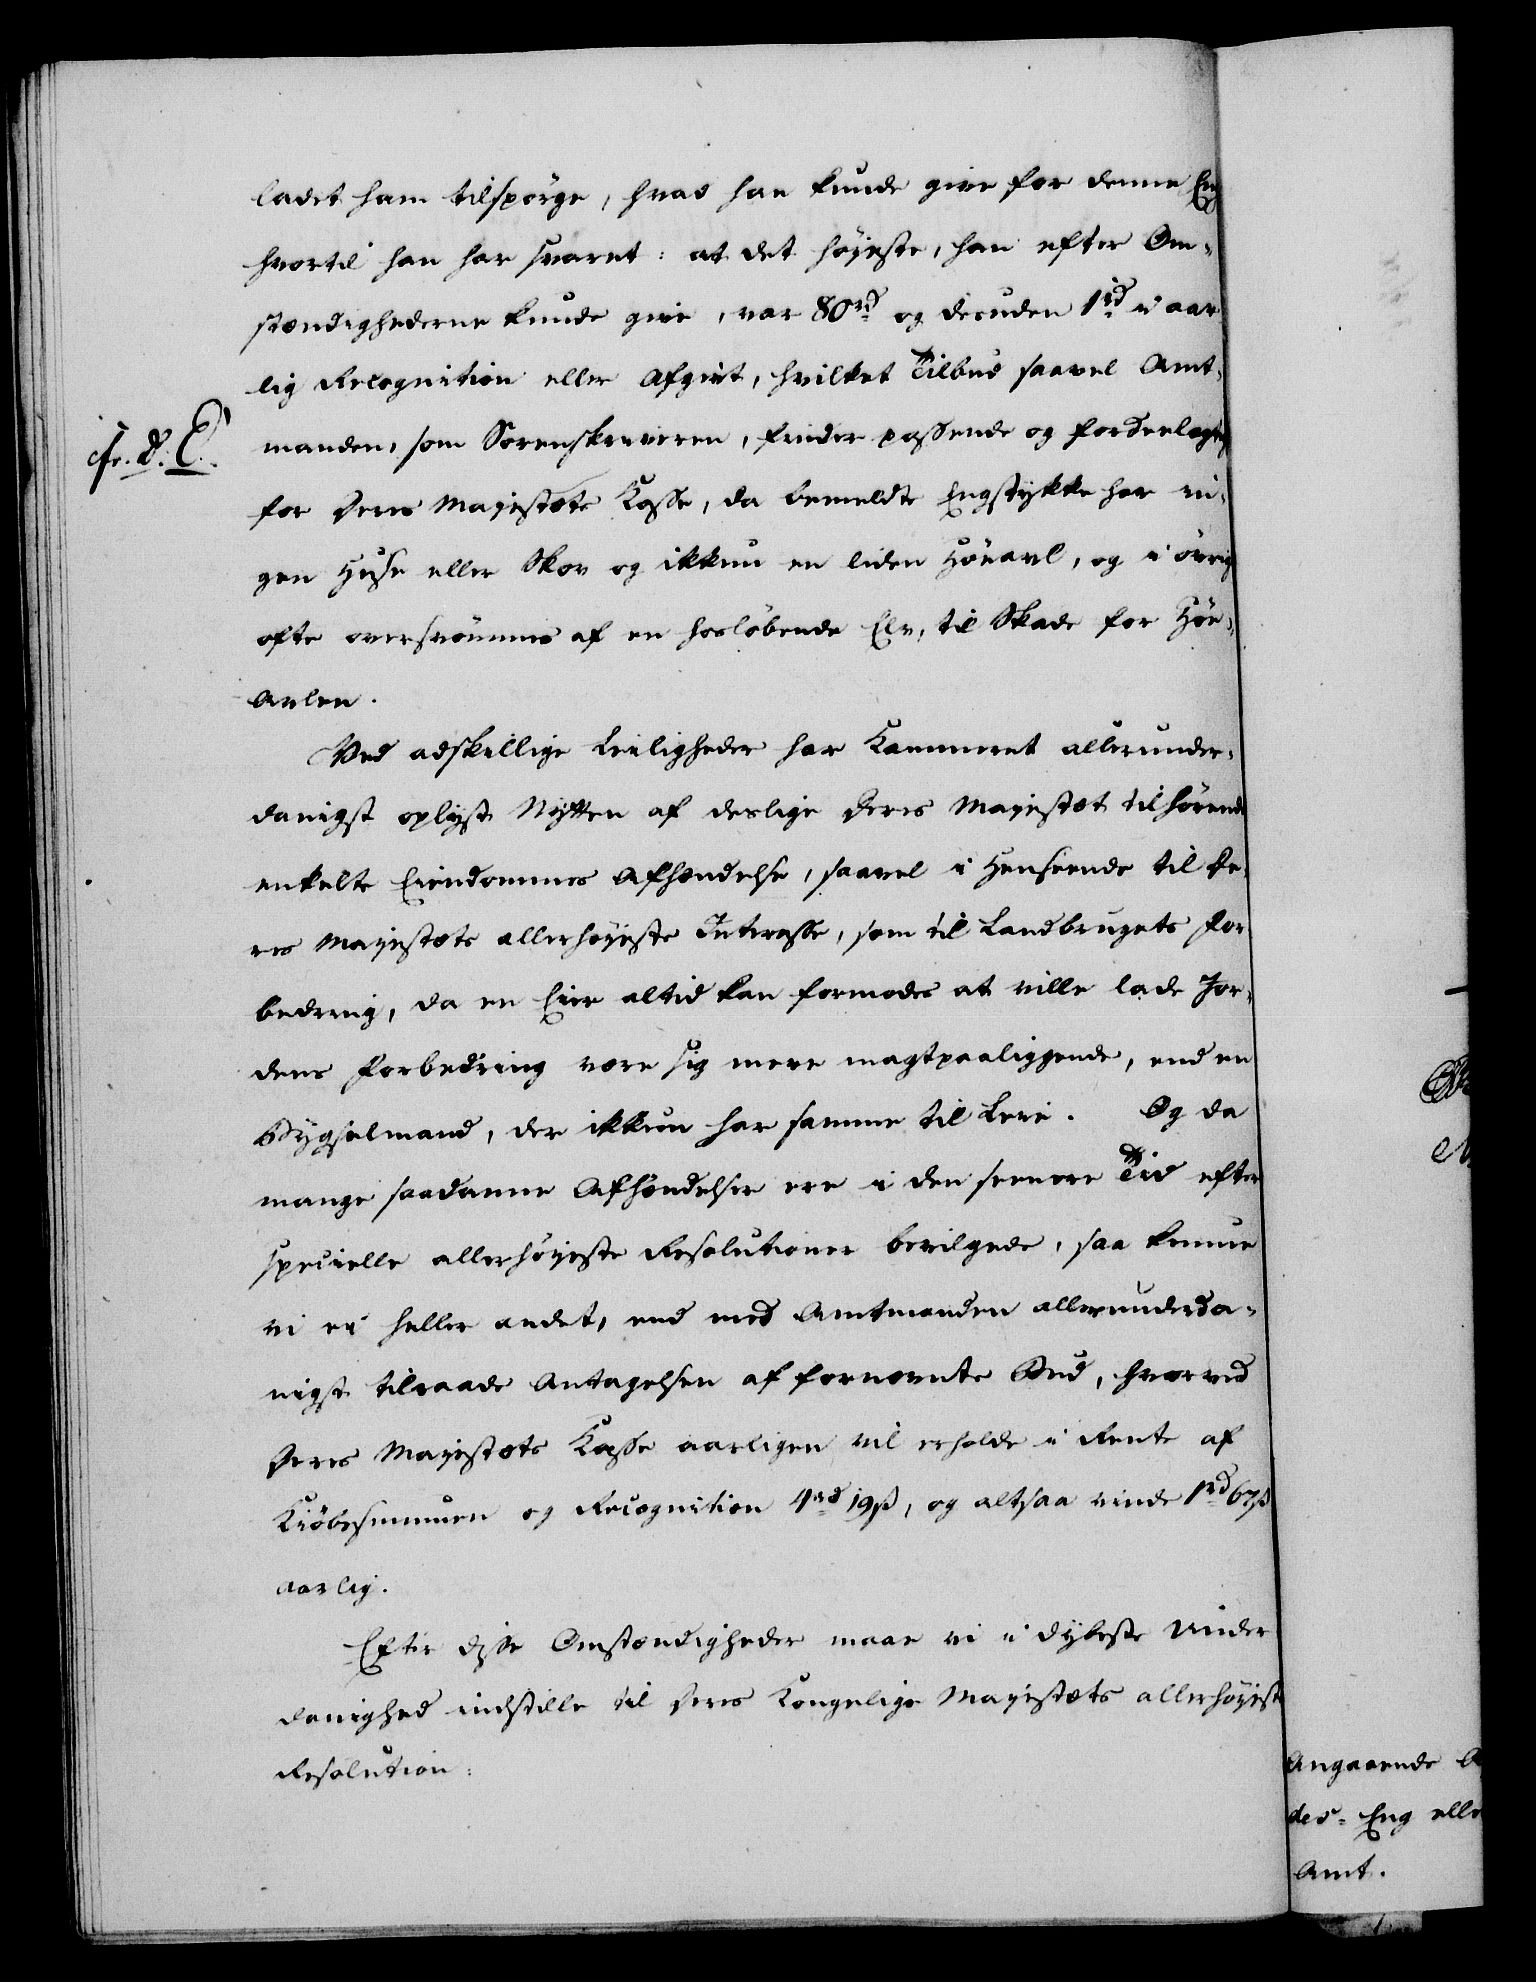 ladet ham tilspørge, hvad han kunde give for denne Eng
hvortil han har svaret: at det høyeste, han efter Om-
stændighederne kunde give, var 80 rd og desuden 1 rd i aar
lig Recognition eller Afgivt, hvilket Tilbud saavel Amt-
manden, som Sorenskriveren, finder passende og fordeelagtig
cfr. d. C.
for Deres Majestæts Kasse, da bemeldte Engstykke har in-
gen Huse eller Skov og ikkun en liden Höeavl, og i övrig
ofte oversvömmes af en hosløbende Elv, til Skade for Höe-
Avlen.
Ved adskillige Leiligheder har Kammeret allerunder-
danigst oplyst Nytten af deslige Deres Majestæt tilhørende
enkelte Eiendommes Afhændelse, saavel i Henseende til De-
res Majestæts allerhøyeste Interesse, som til Landbrugets For
bedring, da en Eier altid kan formodes at ville lade Jor-
dens Forbedring være sig mere magtpaaliggende, end en
Bygselmand, der ikkun har samme til Leie. Og da
mange saadanne Afhændelser ere i den seenere Tid efter
specielle allerhøyeste Resolutioner bevilgede, saa kunne
vi ei heller andet, end med Amtmanden allerunderda-
nigst tilraade Antagelsen af fornævnte Bud, hvorved
Deres Majestæts Kasse aarligen vil erholde i Rente af
Kiöbesummen og Recognition 4 rd 19 ß, og altsaa vinde 1 rd 67 ß
aarlig.
Efter disse Omstændigheder maae vi i dybeste Under
danighed indstille til Deres Kongelige Majestæts allerhøyeste
Resolution:
Angaaende
des- Eng elle
Amt.